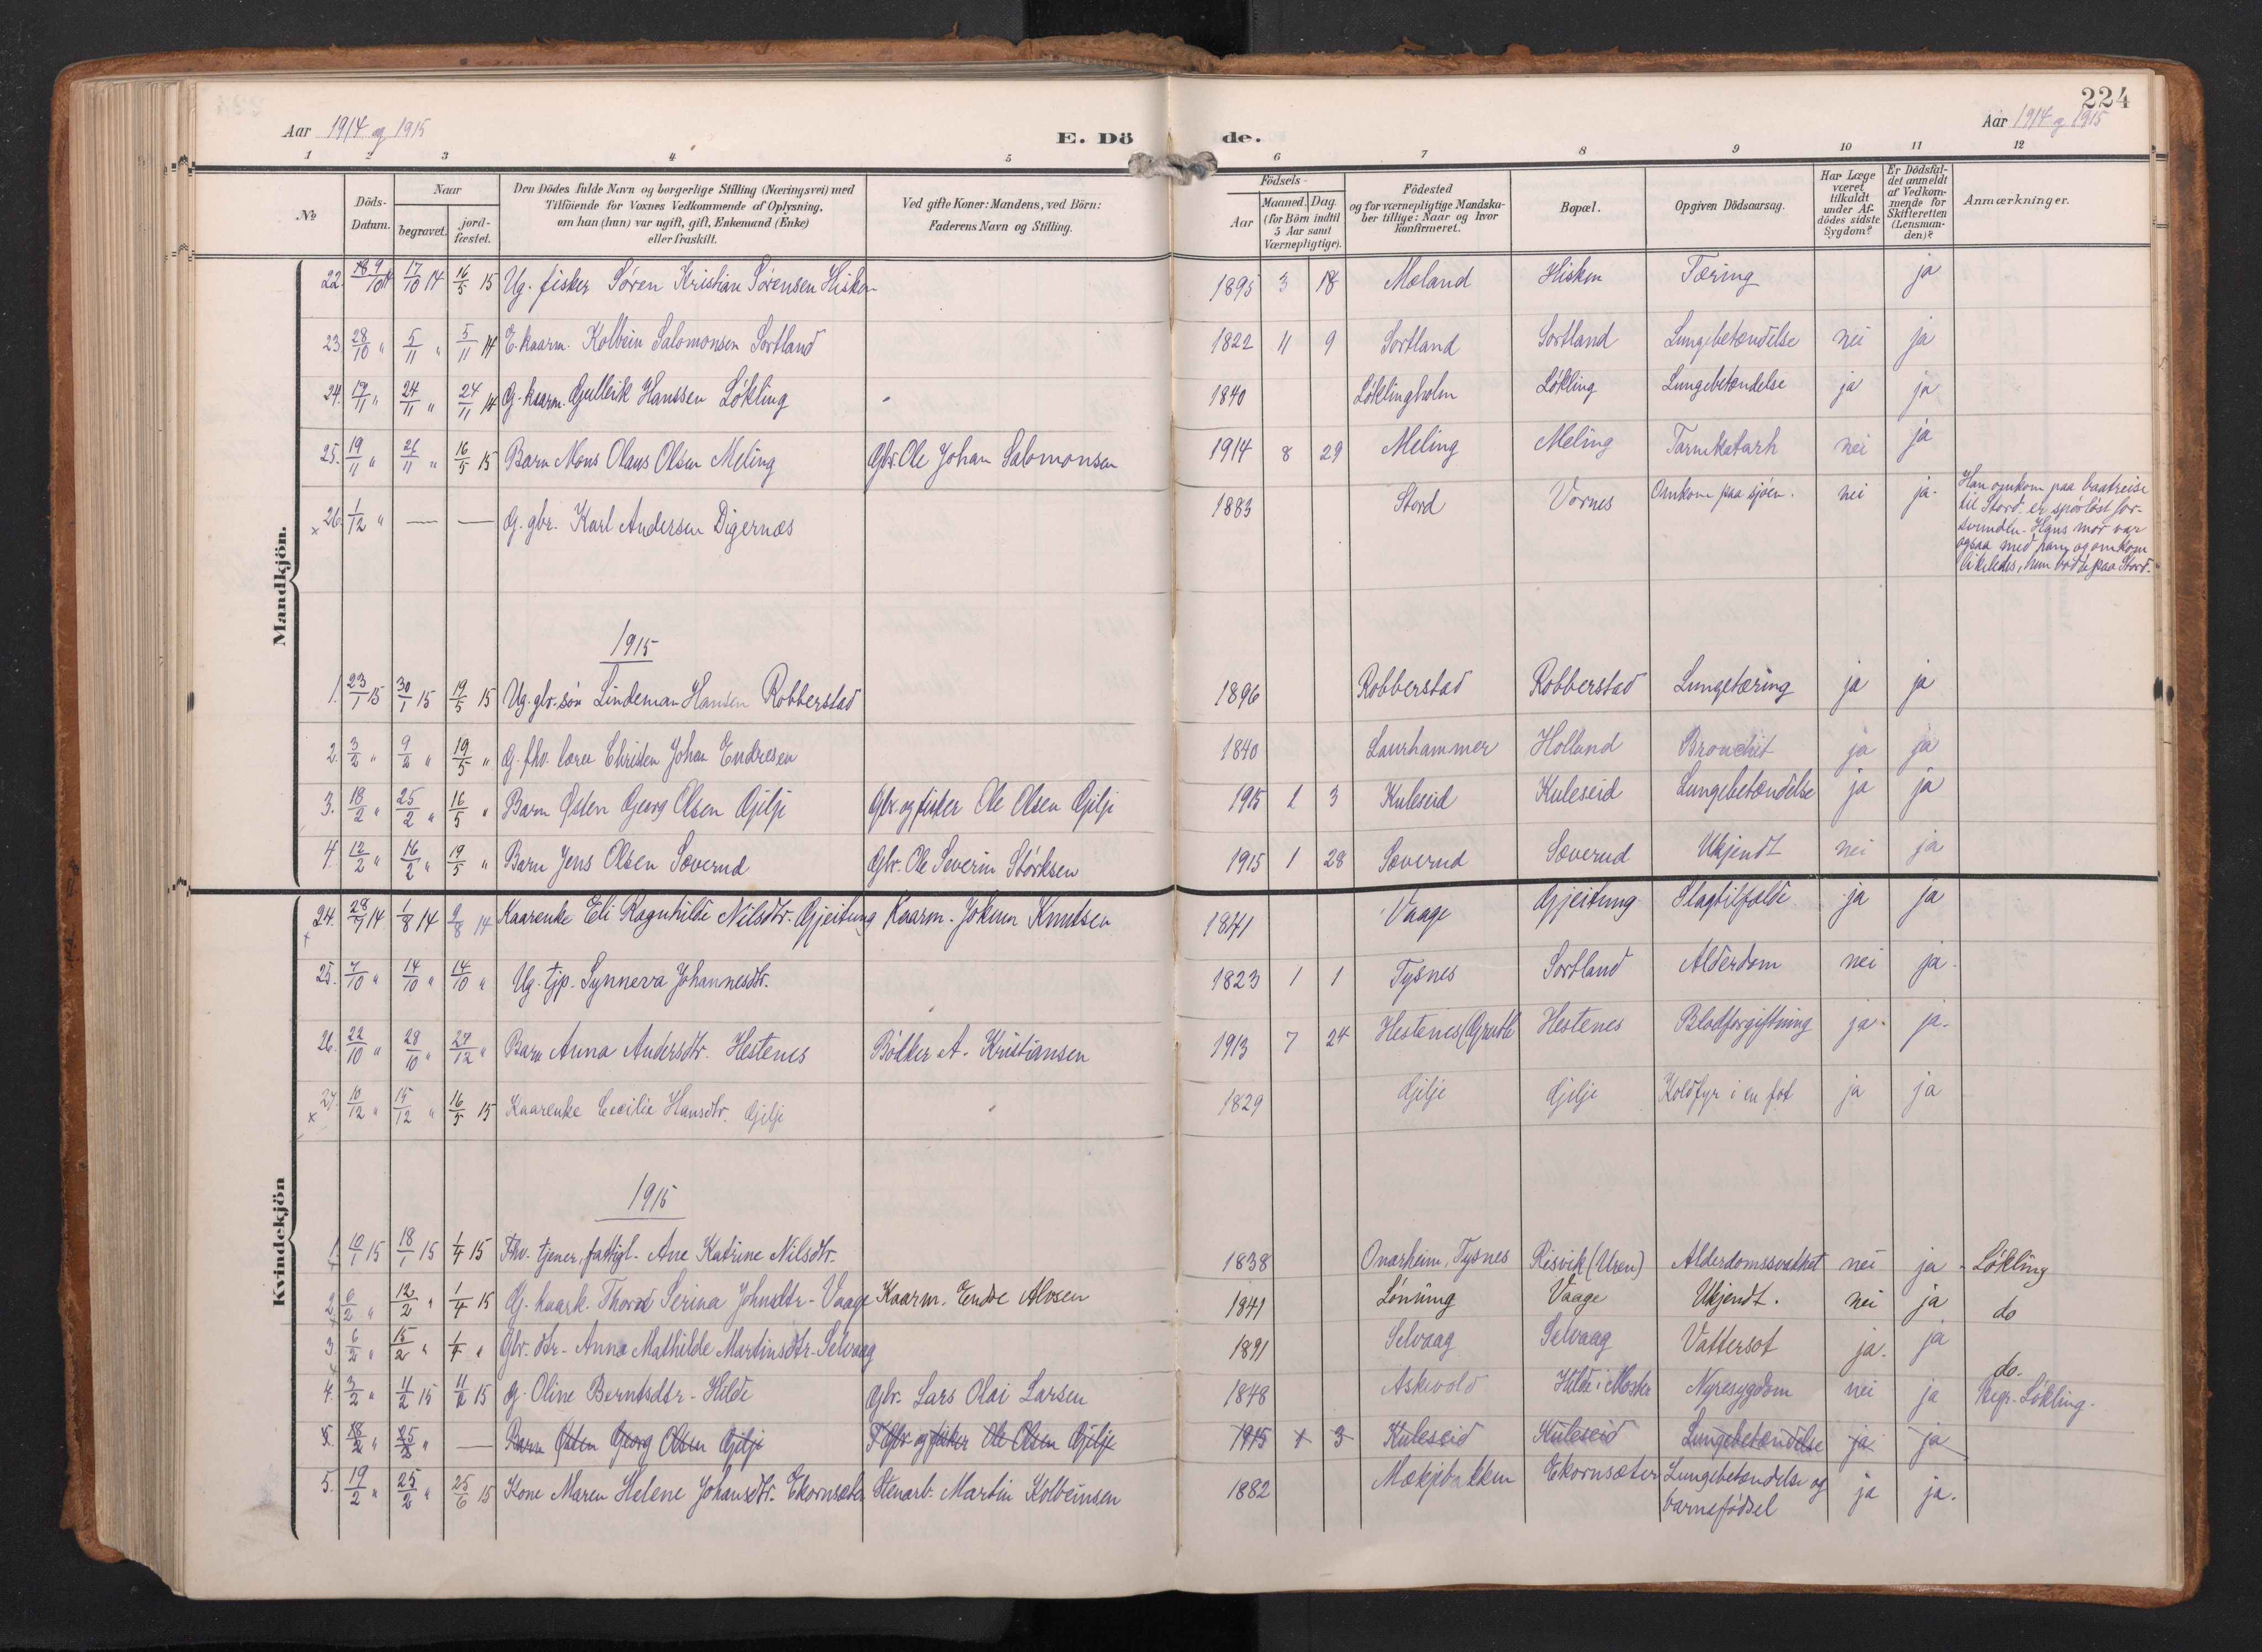 224
Aar 1914 og 1915 E. Dö de. Aar 1914 og 1915
1 2 3 4 5 6 7 8 9 10 11 12
No
Döds-Datum.
Naar
begravet. jord-fæstet.
Den Dödes fulde Navn og borgerlige Stilling (Næringsvei) med
Tilföiende for Voxnes Vedkommende af Oplysning,
om han (hun) var ugift, gift, Enkemand (Enke)
eller fraskilt.
Ved gifte Koner: Mandens, ved Börn:
Faderens Navn og Stilling.
Födsels-
Aar Maaned. Dag
(for Börn indtil
5 Aar samt
Værnepligtige).
Födested
og for værnepligtige Mandska-
ber tillige: Naar og hvor
konfirmeret.
Bopæl.
Opgiven Dödsaarsag.
Har Læge
været
tilkaldt
under Af-
dödes sidste
Sygdom?
Er Dödsfal-
det anmeldt
af Vedkom-
mende for
Skifteretten
(Lensman-
den)?
Anmærkninger.
Mandkjön.
22. 9/10 14 17/10 14 16/5 15 Ug. fisker Søren Kristian Sørensen Hisken 1895 3 18 Moland Hisken Tæring ja
23. 28/10 " 5/11 " 5/11 14 E. kaarm. Kolbein Salomonsen Sortland 1822 11 9 Sortland Sortland Lungebetændelse nei ja
24. 17/11 " 24/11 " 24/11 14 G. kaarm. Gullerik Hanssen Løkling 1840 Løklingholm Løkling Lungebetændelse ja ja
25. 19/11 " 26/11 " 16/5 15 Barn Mons Olaus Olsen Meling Gbr. Ole Johan Salomonsen 1914 8 29 Meling Meling Tarmkatarh nei ja
× 26. 1/12 " — — G. gbr. Karl Andersen Digernæs 1883 Stord Vornes Omkom paa sjøen. nei ja.
Han omkom paa baatreise
til Stord. er sporløst for-
svunden. Hans mor var
ogsaa med ham og omkom
likeledes, hun bodde paa Stord.
1915
1. 23/1 15 30/1 15 19/5 15 Ug. gbr. søn Lindeman Hansen Robberstad 1896 Robberstad Robberstad Lungetæring ja ja
2. 3/2 " 9/2 " 19/5 " G. fhv. lærer Christen Johan Endresen 1840 Laurhammer Holland Bronchit ja ja
3. 18/2 " 25/2 " 16/5 " Barn Østen Georg Olsen Gjilje Gbr. og fisker Ole Olsen Gjilje 1915 1 3 Kuleseid Kuleseid Lungebetændelse ja ja
4. 12/2 " 16/2 " 19/5 " Barn Jens Olsen Sæverud Gbr. Ole Severin Størksen 1915 1 28 Sæverud Sæverud Ukjendt nei ja
Kvindekjön
× 24. 28/7 14 1/8 14 2/8 14 Kaarenke Eli Ragnhilde Nilsdtr. Gjeitung Kaarm. Jokum Knutsen 1841 Vaage Gjeitung Slagtilfælde ja ja
25. 7/10 " 14/10 " 14/10 " Ug. tjp. Synneva Johannesdtr. 1823 1 1 Tysnes Sortland Alderdom nei ja.
26. 22/10 " 28/10 " 27/12 " Barn Anna Andersdtr. Hestenes Bødker A. Kristiansen 1913 7 24 Hestenes Hestenes Blodforgiftning ja. ja.
× 27. 10/12 " 15/12 " 16/5 15 Kaarenke Cecilie Hansdtr. Gjilje 1829 Gjilje Gjilje Koldfyr i en fot ja ja
1915
1. 10/1 15 18/1 15 1/4 15 Fhv. tjener, fattigl. Ane Katrine Nilsdtr. 1838 Onarheim, Tysnes Risvik (Uren) Alderdomssvækket nei ja Løkling
2. 6/2 " 12/2 " 1/4 15 G. kaark. Serina Johnsdtr. Vaage Kaarm. Endre Alvsen 1841 Løning Vaage Ukjendt. nei ja do
3. 6/2 " 15/2 " 1/4 " Gbr. dtr. Anna Mathilde Martinsdtr. Selvaag 1891 Selvaag Selvaag Vattersot ja. ja do.
4. 3/2 " 11/2 15 11/2 15 G. Oline Berntsdtr. Hilde Gbr. Lars Olai Larsen 1848 Askvold Hilde i Moster Nyresygdom nei ja Begr. Løkling.
5. 18/2 " 25/2 " — Barn Østen Georg Olsen Gjilje Gbr og fisker Ole Olsen Gjilje 1915 1 3 Kuleseid Kuleseid Lungebetændelse ja ja
5. 19/2 " 25/2 " 25/6 15 Kone Maren Helene Johansdtr. Ekornsæter Stenarb. Martin Kolbeinsen 1882 Mækjebakken Ekornsæter Lungebetændelse og ja ja.
barnefødsel